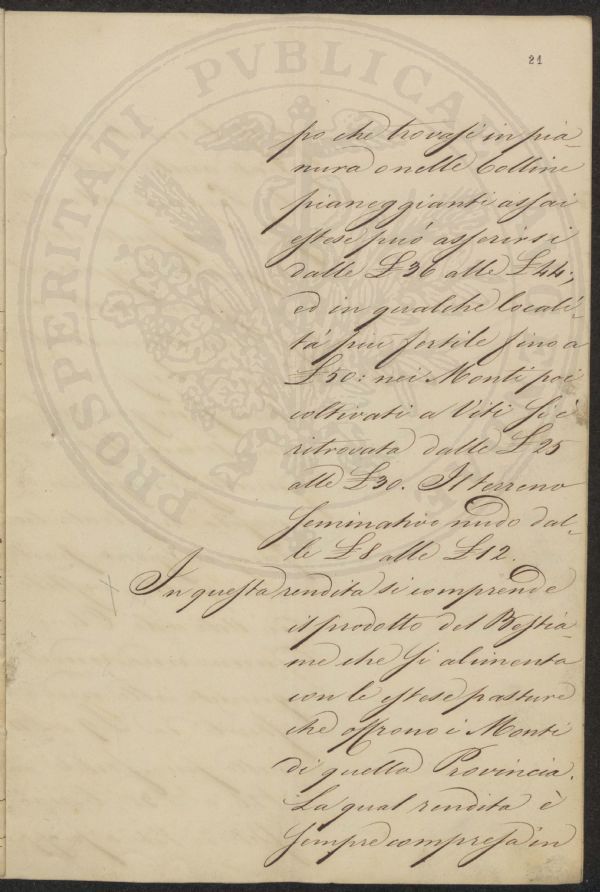 21
po che trovasi in pia-
nura o nelle Colline
pianeggianti assai
estese può asserirsi
dalle £ 36 alle £ 44;
ed in qualche locali-
tà più fertile fino a
£ 50: nei Monti poi
coltivati a Viti si è
ritrovata dalle £ 25
alle £ 30. Il terreno
seminativo nudo dal-
le £ 8 alle £ 12.
In questa rendita si comprende
il prodotto del Bestia-
me che si alimenta
con le estese pasture
che offrono i Monti
di quella Provincia.
La qual rendita è
sempre compresa in
PROSPERITATI PVBLICAE